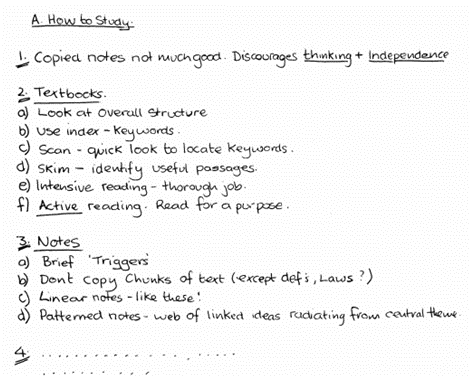 A. How to Study.
1. Copied notes not much good. Discourages thinking + Independence
2. Textbooks.
a) Look at Overall Structure
b) Use index - Keywords.
c) Scan - quick look to locate keywords.
d) Skim - identify useful passages.
e) Intensive reading - thorough job.
f) Active reading. Read for a purpose.
3. Notes
a) Brief 'Triggers'
b) Dont Copy Chunks of text (except def's, Laws?)
c) Linear notes - like these!
d) Patterned notes - web of linked ideas radiating from central theme.
4. . . . . . . . . . . . . . . . . .
. . . . . . . . . .